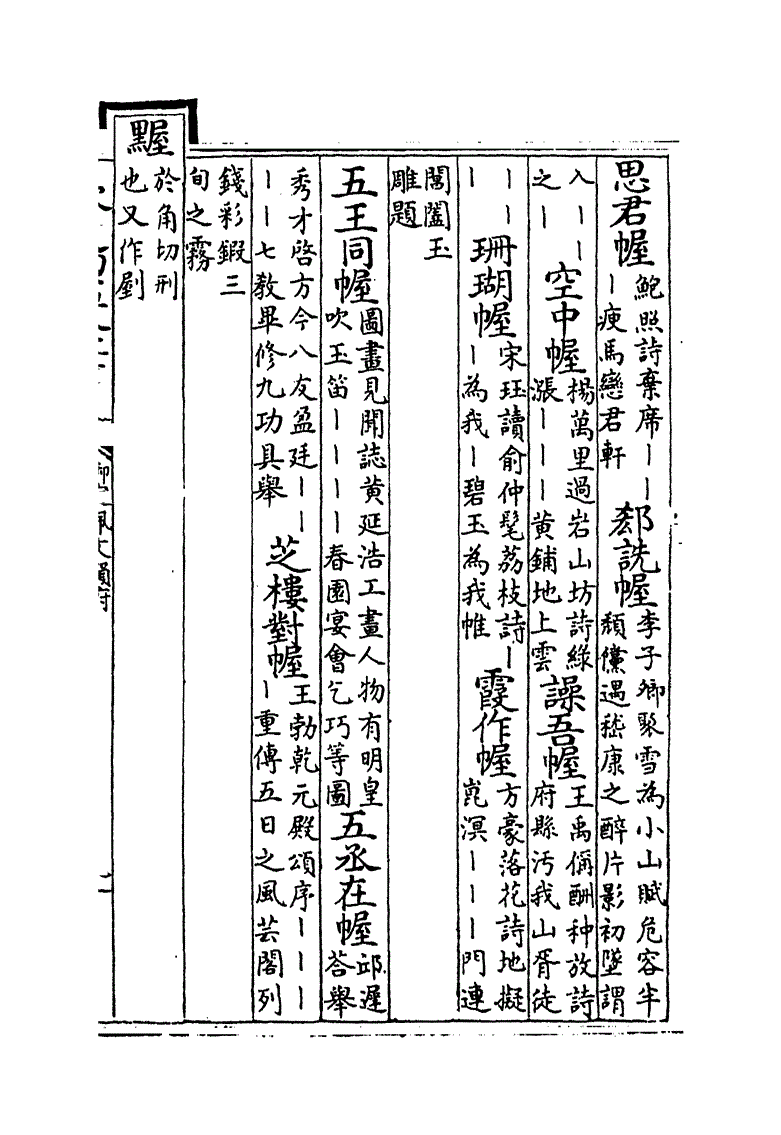 思君幄鮑照詩棄席丨丨丨疲馬戀君軒 郄詵幄李子卿聚雪為小山賦危容半頽儻遇嵇康之醉片影初墜謂
入丨丨之丨 空中幄楊萬里過岩山坊詩綠漲丨丨丨黄鋪地上雲 譟吾幄王禹偁酬种放詩府縣汚我山胥徒
丨丨丨 珊瑚幄宋珏讀俞仲髦荔枝詩丨丨為我丨碧玉為我帷 霞作幄方豪落花詩地擬崑溟丨丨丨門連
閬闔玉雕題
五王同幄圖畫見聞誌黄延浩工畫人物有明皇吹玉笛丨丨丨丨春園宴會乞巧等圖 五丞在幄邱遲荅舉
秀才啓方今八友盈廷丨丨丨丨七教畢修九功具舉 芝樓對幄王勃乾元殿頌序丨丨丨丨重傳五日之風芸閣列
錢彩鍜三旬之霧
黫於角切刑也又作剭
御定佩文韻府